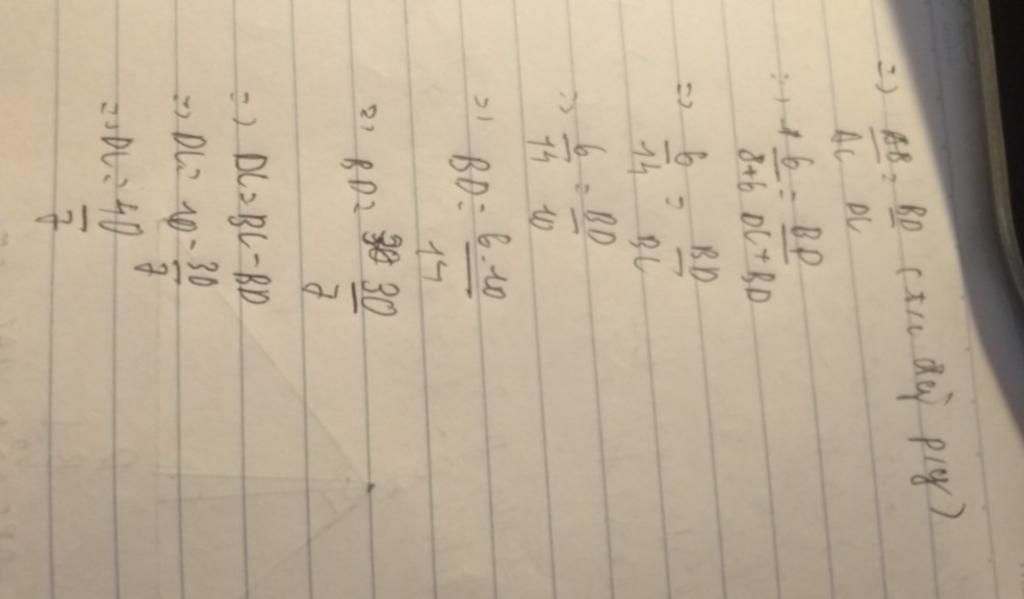 => AB/AC = BD/DC (t/c đg p/g)
=> 6/8+6 = BD/DC+BD
=> 6/14 = BD/BC
=> 6/14 = BD/10
=> BD = 6.10/14
=> BD = 30/7
=> DC = BC - BD
=> DC = 10 - 30/7
=> DC = 40/7